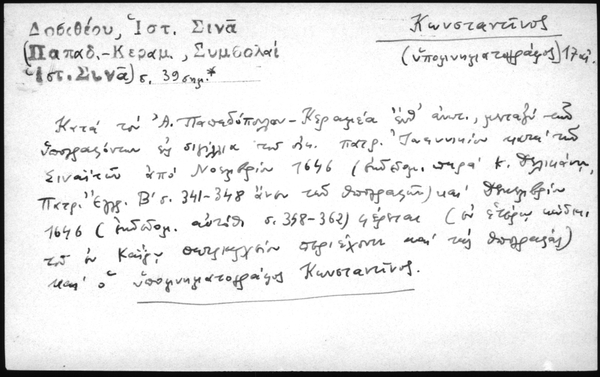 Δοσιθέου, Ἱστ. Σινᾶ
(Παπαδ.-Κεραμ., Συμβολαί
Ἱστ. Σινᾶ) σ. 39 σημ.*
Κωνσταντῖνος
(ὑπομνηματογράφος) 17 αἰ.
Κατὰ τὸν Ἀ. Παπαδόπουλον-Κεραμέα ἐνθ' ἀνωτ., μεταξὺ τῶν
ὑπογραφόντων εἰς σιγίλλια τοῦ οἰκ. πατρ. Ἰωαννικίου κατὰ τῶν
Σιναϊτῶν ἀπὸ Νοεμβρίου 1646 (ἐκδεδομ. παρὰ Κ. Δελικάνη,
Πατρ. Ἔγγρ. Β' σ. 341-348 ἄνευ τῶν ὑπογραφῶν) καὶ Δεκεμβρίου
1646 (ἐκδεδομ. αὐτόθι σ. 348-362) φέρεται (ἐν ἑτέρῳ κώδικι
τοῦ ἐν Καΐρῳ πατριαρχείου περιέχοντι καὶ τὰς ὑπογραφάς)
καὶ ὁ ὑπομνηματογράφος Κωνσταντῖνος.